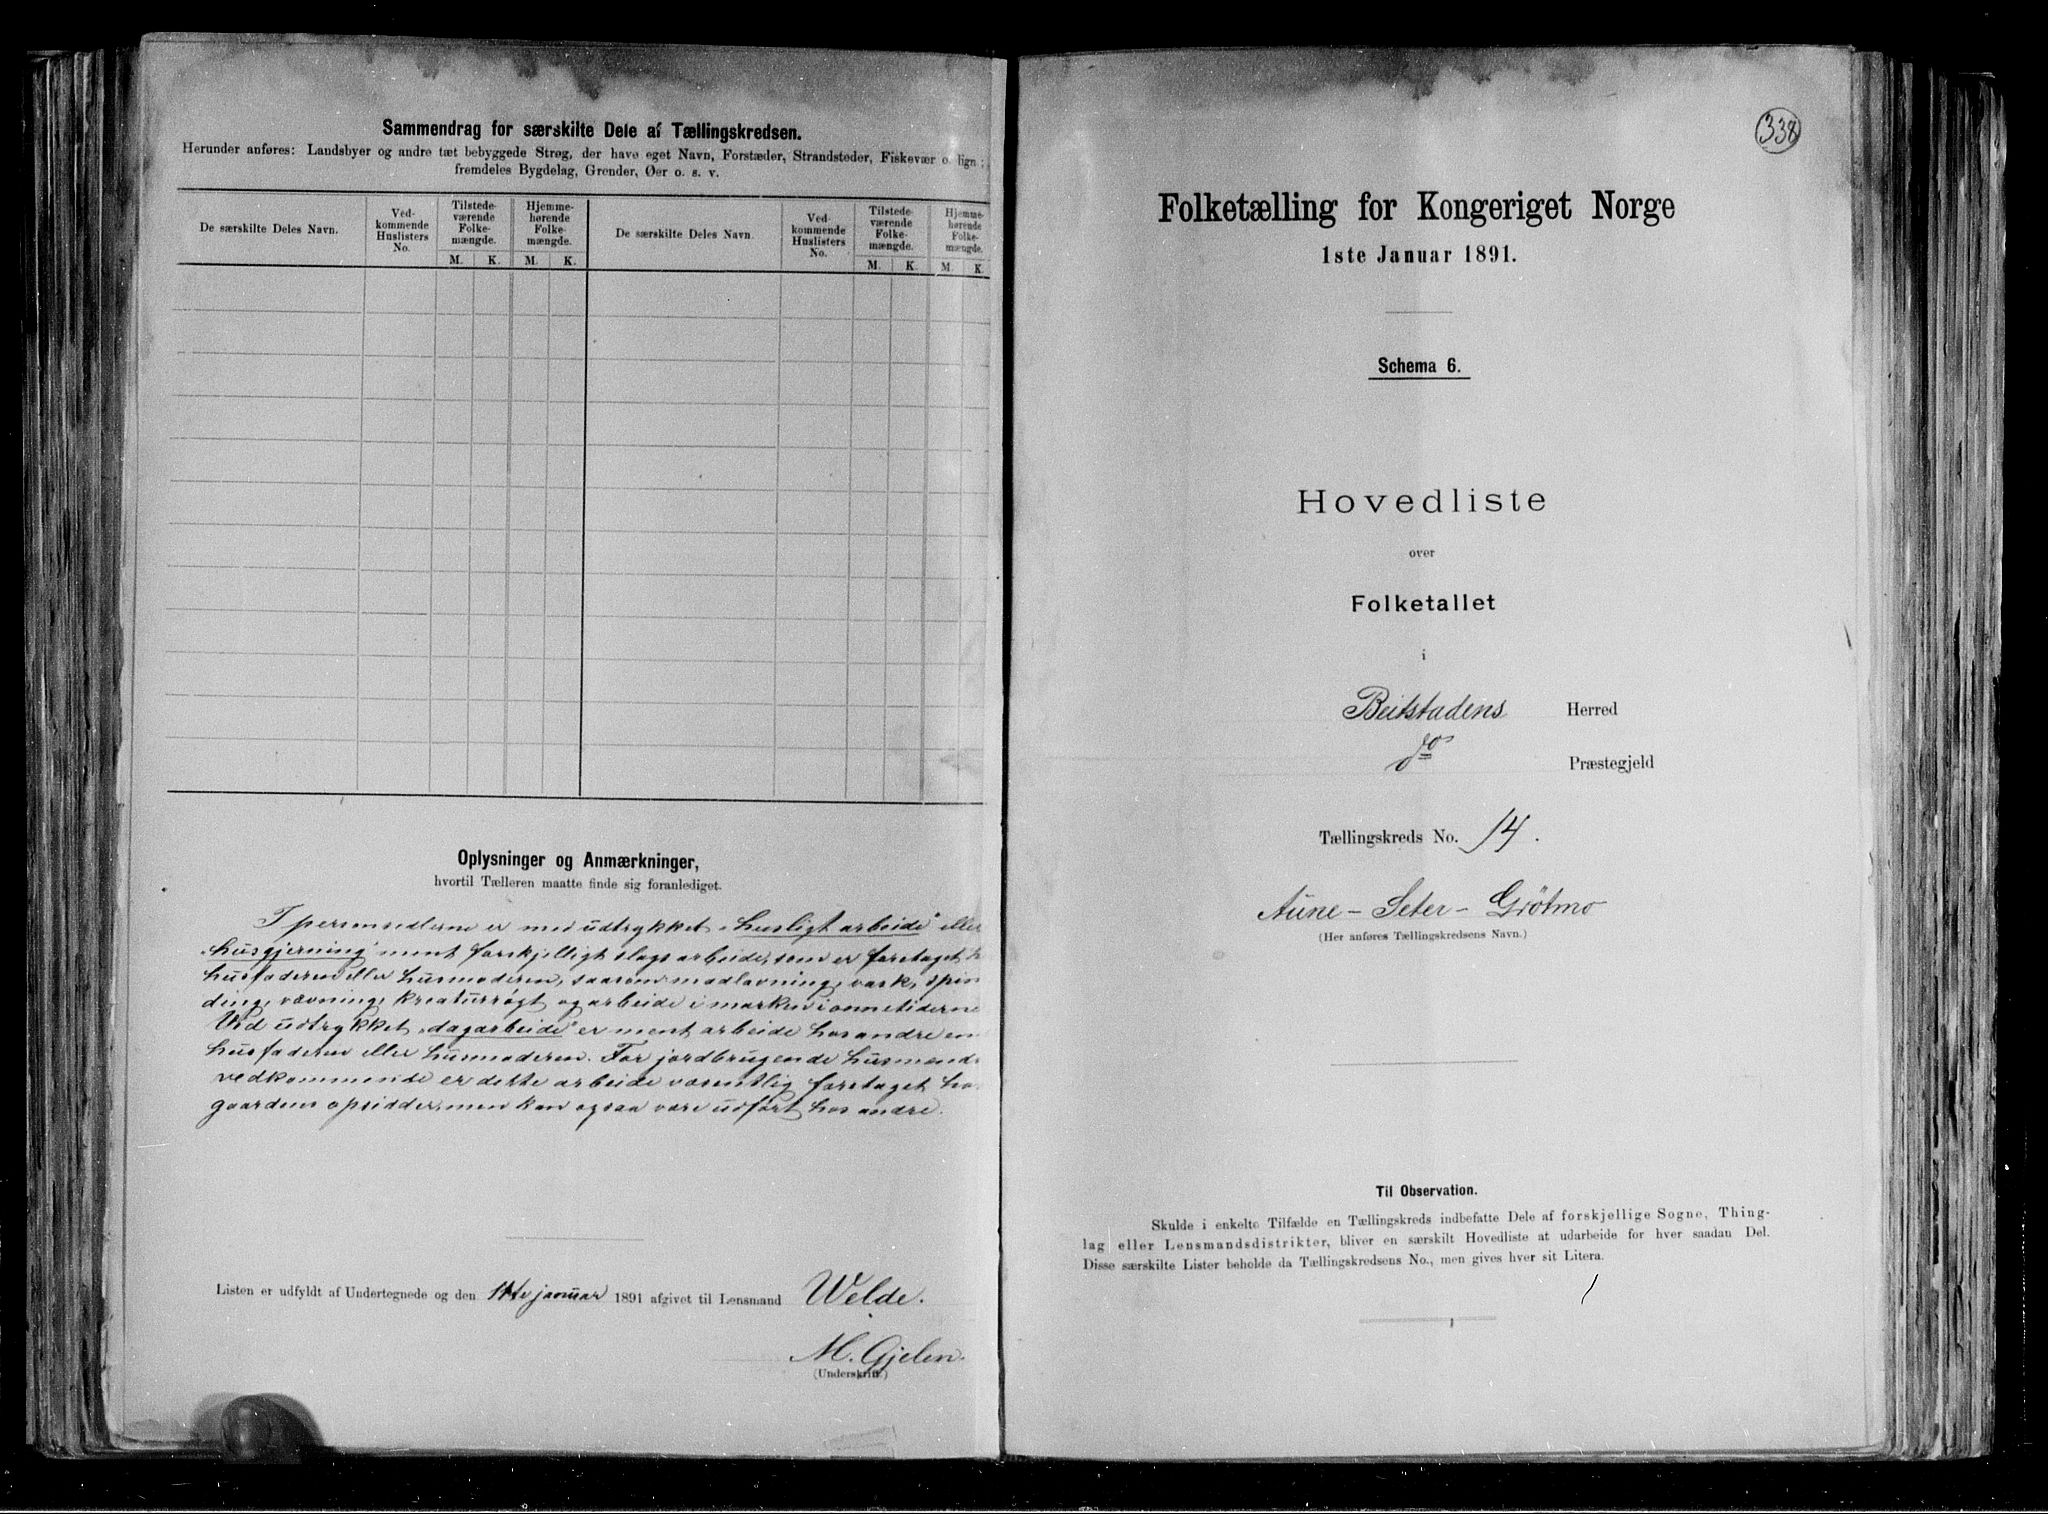 Sammendrag for særskilte Dele af Tællingskredsen.
Herunder anføres: Landsbyer og andre tæt bebyggede Strøg, der have eget Navn, Forstæder, Strandsteder, Fiskevær o. lign.;
fremdeles Bygdelag, Grender, Øer o. s. v.
De særskilte Deles Navn.
Ved-
kommende
Huslisters
No.
Tilstede-
værende
Folke-
mængde.
Hjemme-
hørende
Folke-
mængde.
M. K. M. K.
De særskilte Deles Navn.
Ved-
kommende
Huslisters
No.
Tilstede-
værende
Folke-
mængde.
Hjemme-
hørende
Folke-
mængde.
M. K. M. K.
Oplysninger og Anmærkninger,
hvortil Tælleren maatte finde sig foranlediget.
I personsedlerne er med udtrykket "husligt arbeide" eller
"husgjerning" ment forskjelligt slags arbeide, som er foretaget
husfaderen eller husmoderen, saasom madlavning, vask, spin
ding, vævning, kreaturrøgt og arbeide i marken i onnetiderne
Vid udtrykket "dagarbeide" er ment arbeide hos andre en
husfaderen eller husmoderen. For jordbrugende husmænds
vedkommende er dette arbeide væsentlig foretaget hos
gaardens opsidder, men kan ogsaa være udført hos andre.
Listen er udfyldt af Undertegnede og den 14de januar 1891 afgivet til Lensmand Welde.
M. Gjelen.
(Underskrift.)
338
Folketælling for Kongeriget Norge
1ste Januar 1891.
Schema 6.
Hovedliste
over
Folketallet
i
Beitstadens Herred
do Præstegjeld
Tællingskreds No. 14.
Aune - Seter - Grötmo
(Her anføres Tællingskredsens Navn.)
Til Observation.
Skulde i enkelte Tilfælde en Tællingskreds indbefatte Dele af forskjellige Sogne, Thing-
lag eller Lensmandsdistrikter, bliver en særskilt Hovedliste at udarbeide for hver saadan Del.
Disse særskilte Lister beholde da Tællingskredsens No., men gives hver sit Litera.